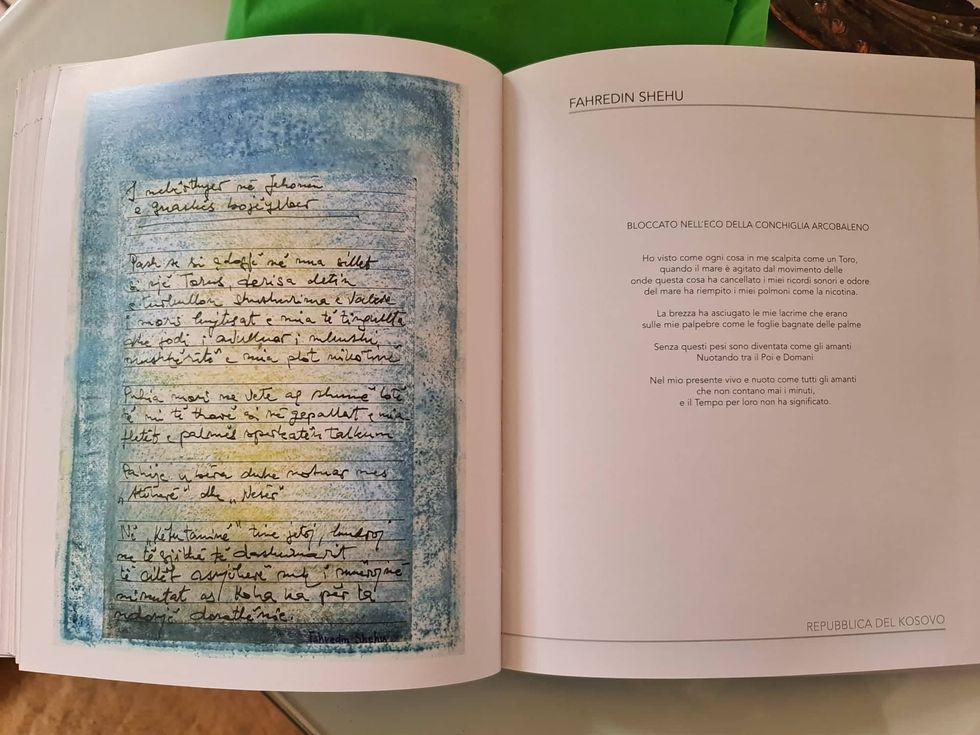 I mbërthyer në Jehonën
e guaskës bojëylber
Pash se si çdogjë në mua sillet
si një Torus, derisa detin
e turbullon shushurima e valëve
e mori kujtesat e mia të tingullta
dhe jodi i avulluar i mbushi
mushkëritë e mia plot nikotinë
mori me vete aq shumë lotë
të mi të tharë si në qepallat e mia
fletët e palmës
duke notuar mes
dhe „Nesër“
Në „Këtutaninë“ time jetoj,
me të gjithë të dashuruarit
të cilët asnjëherë nuk i numërojnë
minutat as Koha ka për ta
ndonjë domethënie.
Fahredin Shehu
FAHREDIN SHEHU
BLOCCATO NELL'ECO DELLA CONCHIGLIA ARCOBALENO
Ho visto come ogni cosa in me scalpita come un Toro,
quando il mare è agitato dal movimento delle
onde questa cosa ha cancellato i miei ricordi sonori e odore
del mare ha riempito i miei polmoni come la nicotina.
La brezza ha asciugato le mie lacrime che erano
sulle mie palpebre come le foglie bagnate delle palme
Senza questi pesi sono diventata come gli amanti
Nuotando tra il Poi e Domani
Nel mio presente vivo e nuoto come tutti gli amanti
che non contano mai i minuti,
e il Tempo per loro non ha significato.
REPUBBLICA DEL KOSOVO